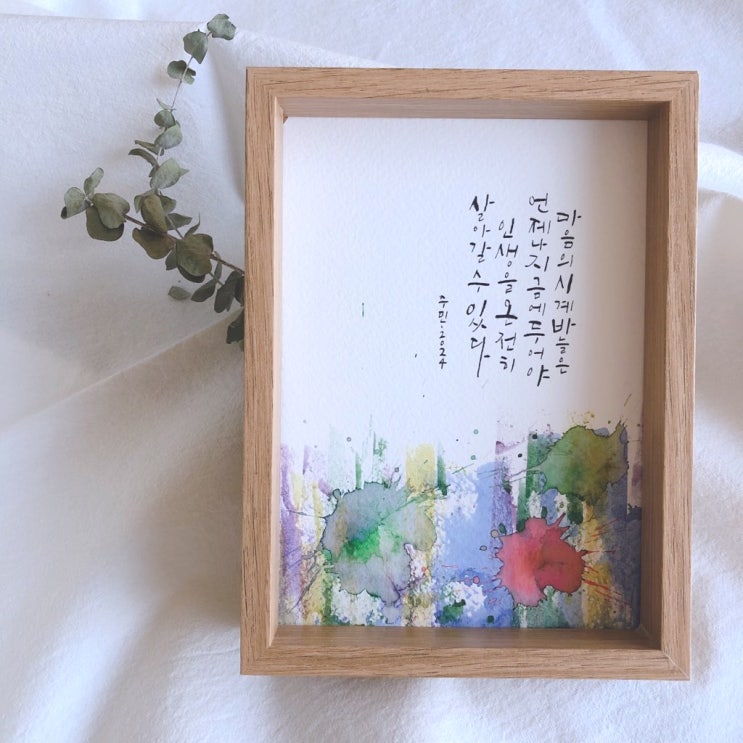 마음의 시계바늘은
언제나 지금에 두어야
인생을 온전히
살아갈 수 있다
주민.2024